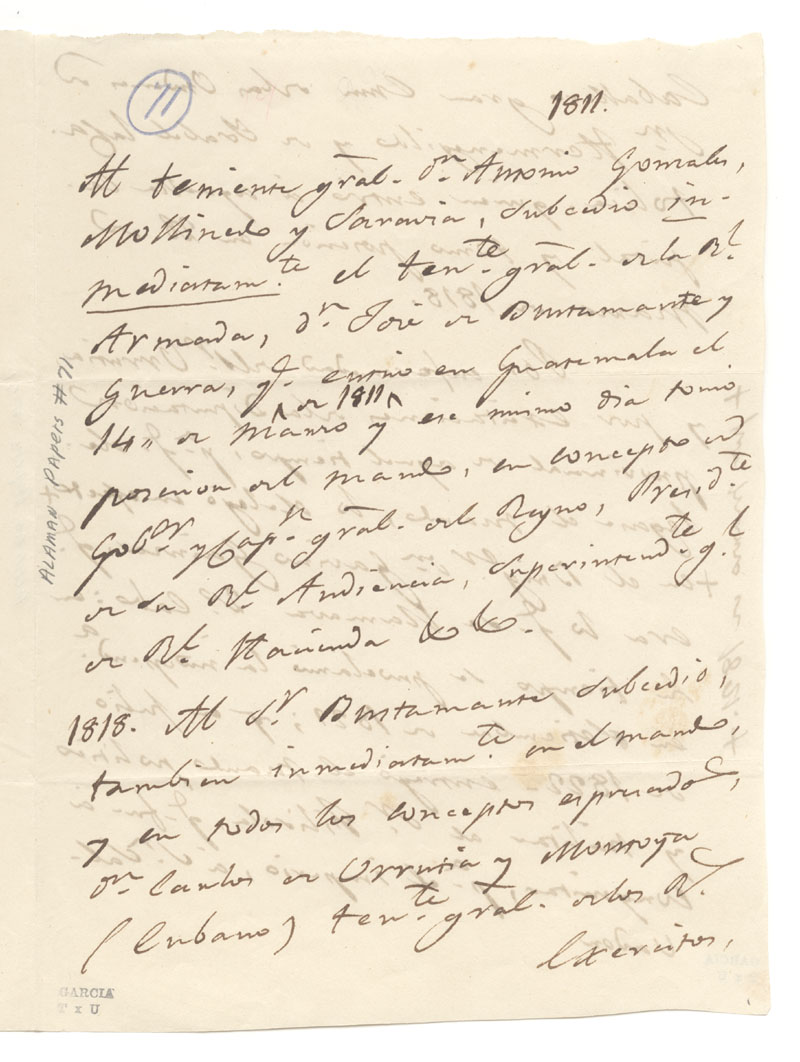 11
1811.
Al teniente gral. dn. Antonio Gonzales,
Mollinedo y Saravia, subcedio in-
mediatamte. el tente. gral. de la Rl.
Armada, dn. José de Bustamante y
Guerra, q. entró en Guatemala el
14,, de Marzo de 1811 y ese mismo dia tomó
posesion del mando, en concepto de
Gobor. y Capn. gral. del Reyno, Presidte.
de su Rl. Audiencia, Superintendte. gl.
de Rl. Hacienda &c &c.
1818. Al Sr. Bustamante subcedio,
tambien inmediatamte. en el mando,
y en todos los conceptos espresados,
dn. Carlos de Urrutia y Montoya
(Cubano) tente. gral. de los Rs.
Exercitos,
ALAMAN PAPERS #71
GARCIA
T x U